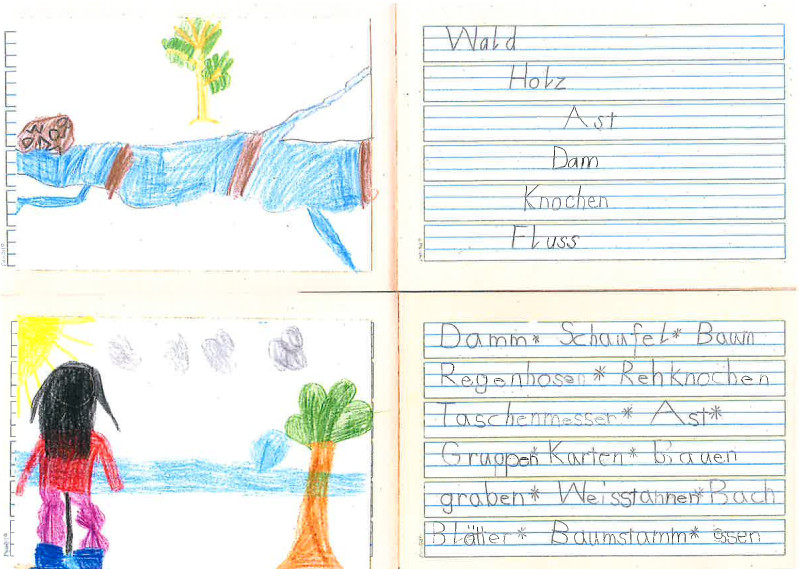 Wald
Holz
Ast
Dam
Knochen
Fluss
Damm* Schaufel* Baum
Regenhosen* Rehknochen
Taschenmesser* Ast*
GruppenKarten* Bauen
graben* Weisstannen*Bach
Blätter* Baumstamm* essen